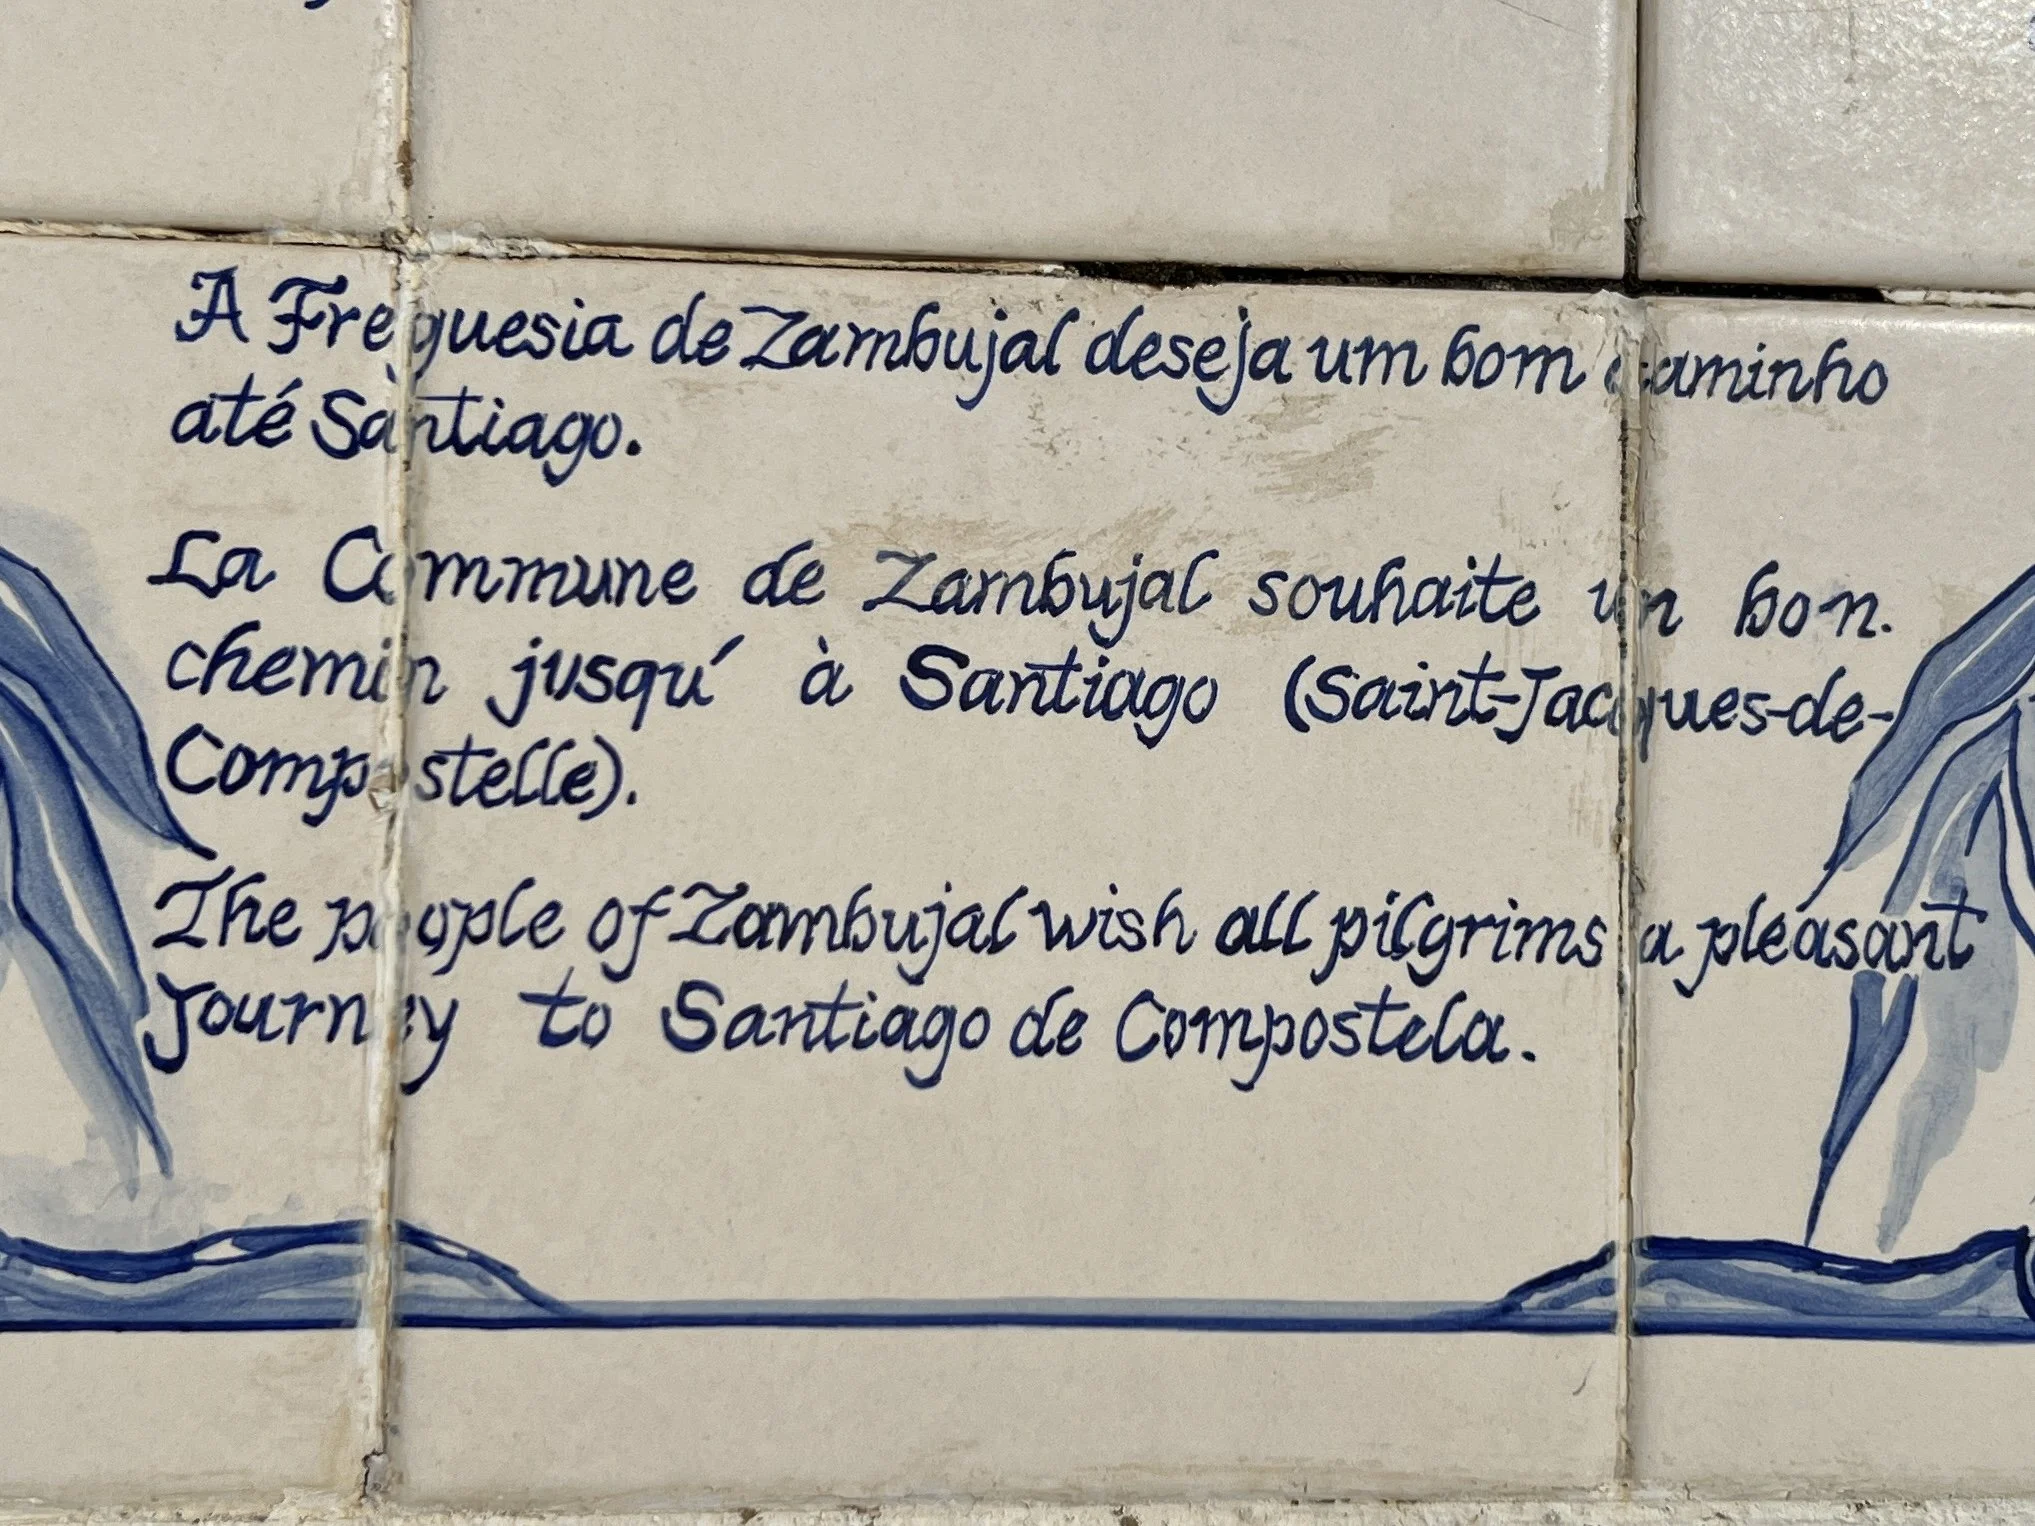 A Freguesia de Zambujal deseja um bom caminho
até Santiago.
La Commune de Zambujal souhaite un bon.
chemin jusqu' à Santiago (Saint-Jacques-de-
Compostelle).
The people of Zambujal wish all pilgrims a pleasant
Journey to Santiago de Compostela.